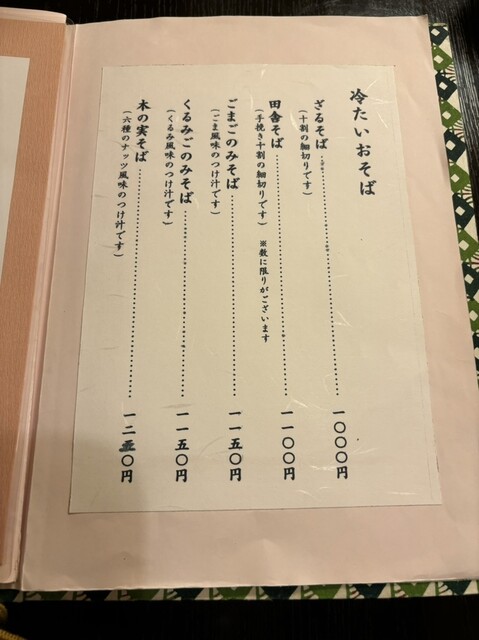 冷たいおそば
ざるそば……一〇〇〇円
(十割の細切りです)
田舎そば……一一〇〇円
(手挽き十割の細切りです) ※数に限りがございます
ごまごのみそば……一一五〇円
(ごま風味のつけ汁です)
くるみごのみそば……一一五〇円
(くるみ風味のつけ汁です)
木の実そば……一二五〇円
(六種のナッツ風味のつけ汁です)